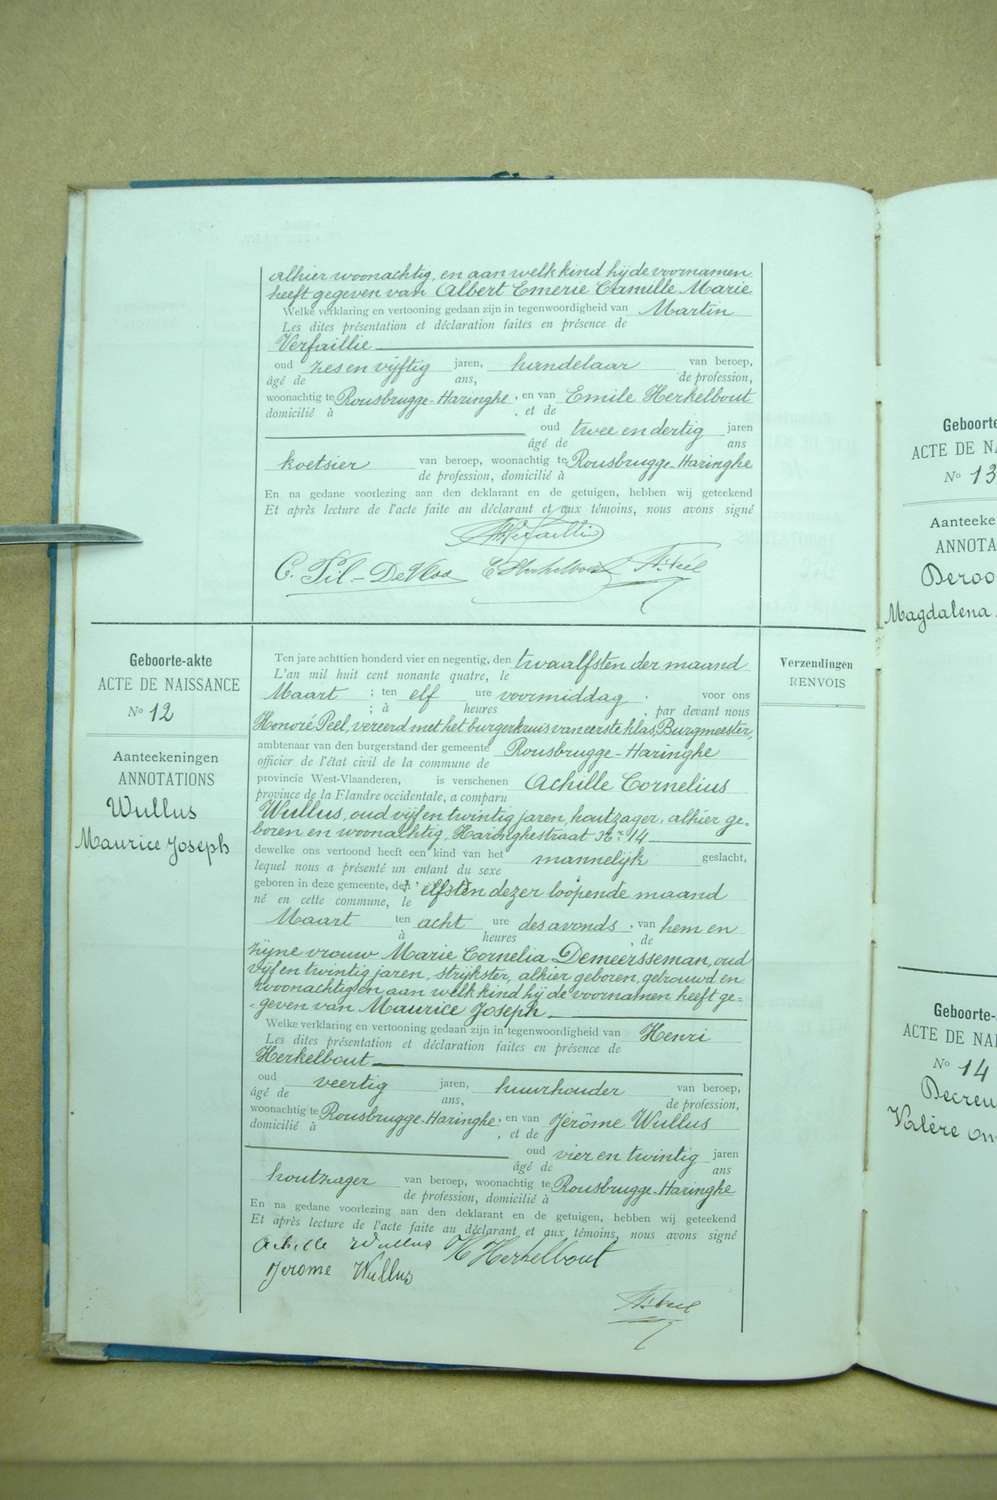 alhier woonachtig, en aan welk kind hij de voornamen
heeft gegeven van Albert Emerie Camille Marie
Welke verklaring en vertooning gedaan zijn in tegenwoordigheid van Martin
Les dites présentation et déclaration faites en présence de
Verfaillie
oud zes en vijftig jaren, handelaar van beroep,
âgé de ans, de profession,
woonachtig te Rousbrugge-Haringhe, en van Emile Herkelbout
domicilié à , et de
oud twee en dertig jaren
âgé de ans
koetsier van beroep, woonachtig te Rousbrugge-Haringhe
de profession, domicilié à
En na gedane voorlezing aan den deklarant en de getuigen, hebben wij geteekend
Et après lecture de l'acte faite au déclarant et aux témoins, nous avons signé
C. Pil-DeVloo E Herkelbout
Geboorte-akte
ACTE DE NAISSANCE
No 12
Aanteekeningen
ANNOTATIONS
Wullus
Maurice Joseph
Ten jare achttien honderd vier en negentig, den twaalfsten der maand
L'an mil huit cent nonante quatre, le
Maart ; ten elf ure voormiddag , voor ons
; à heures , par devant nous
Honoré Peel, vereerd met het burgerkruis van eerste klas, Burgmeester,
ambtenaar van den burgerstand der gemeente Rousbrugge-Haringhe
officier de l'état civil de la commune de
provincie West-Vlaanderen, is verschenen Achille Cornelius
province de la Flandre occidentale, a comparu
Wullus, oud vijf en twintig jaren, houtzager, alhier ge-
boren en woonachtig, Haringhestraat Nr 14
dewelke ons vertoond heeft een kind van het mannelijk geslacht,
lequel nous a présenté un enfant du sexe
geboren in deze gemeente, den elfsten dezer loopende maand
né en cette commune, le
Maart ten acht ure des avonds , van hem en
à heures , de
zijne vrouw Marie Cornelia Demeersseman, oud
vijf en twintig jaren, strijkster, alhier geboren, getrouwd en
woonachtig en aan welk kind hij de voornamen heeft ge-
geven van Maurice Joseph
Welke verklaring en vertooning gedaan zijn in tegenwoordigheid van Henri
Les dites présentation et déclaration faites en présence de
Herkelbout
oud veertig jaren, huurhouder van beroep,
âgé de ans, de profession,
woonachtig te Rousbrugge-Haringhe, en van Jérôme Wullus
domicilié à , et de
oud vier en twintig jaren
âgé de ans
houtzager van beroep, woonachtig te Rousbrugge-Haringhe
de profession, domicilié à
En na gedane voorlezing aan den deklarant en de getuigen, hebben wij geteekend
Et après lecture de l'acte faite au déclarant et aux témoins, nous avons signé
Achille Wullus H Herkelbout
Jerome Wullus
Verzendingen
RENVOIS
Geboorte
ACTE DE NA
No 13
Aanteeke
ANNOTA
Deroo
Magdalena
Geboorte-
ACTE DE NAI
No 14
Decreu
Valère